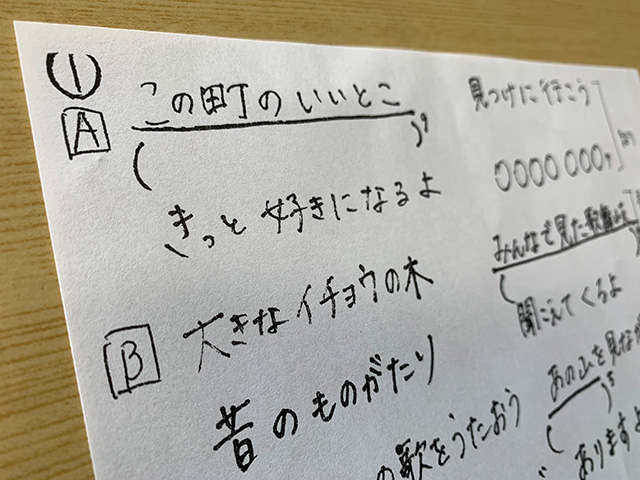 ①
A
この町のいいとこ
見つけに行こう
(
)
きっと好きになるよ
〇〇〇〇〇〇〇
みんなで見た
聞こえてくるよ
B
大きなイチョウの木
昔のものがたり
の歌をうたおう
あの山を見な
ありますよ